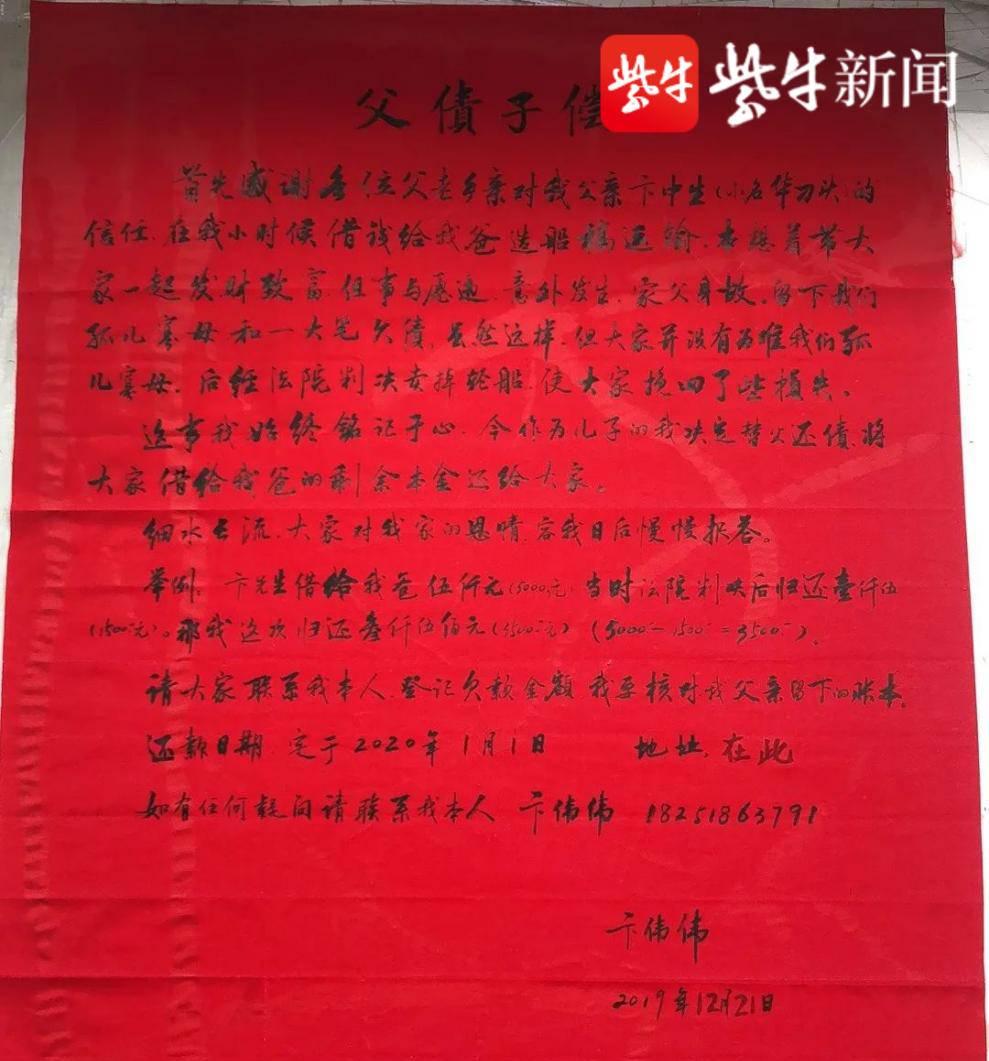 紫牛 紫牛新闻
父債子偿
首先感谢各位父老乡亲对我父亲卞中生(小名华刀头)的
信任.在我小时候借钱给我爸造船搞运输.本想着带大
家一起发财致富.但事与愿违.意外发生.家父身故.留下我们
孤儿寡母和一大笔欠债.虽然这样.但大家并没有为难我们孤
儿寡母.后经法院判决卖掉轮船.使大家挽回了些损失.
这事我始终铭记于心.今作为儿子的我决定替父还债.将
大家借给我爸的剩余本金还给大家。
细水长流.大家对我家的恩情.容我日后慢慢报答。
举例.卞先生借给我爸伍仟元(5000元)当时法院判决后归还壹仟伍
(1500元)。那我这次归还叁仟伍佰元(3500元)(5000-1500=3500).
请大家联系我本人.登记欠款金额.我要核对我父亲留下的账本.
还款日期.定于2020年1月1日 地址.在此
如有任何疑问请联系我本人 卞伟伟 18251863791
卞伟伟
2019年12月21日